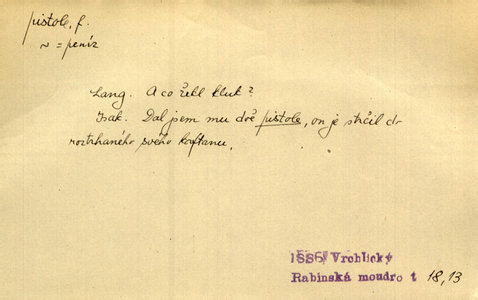 pistole, f.
~ = peníz
Lang. A co řekl kluk?
Isak. Dal jsem mu dvě pistole, on je strčil do
roztrhaného svého kaftanu.
1886 Vrchlický
Rabínská moudro t 18,13